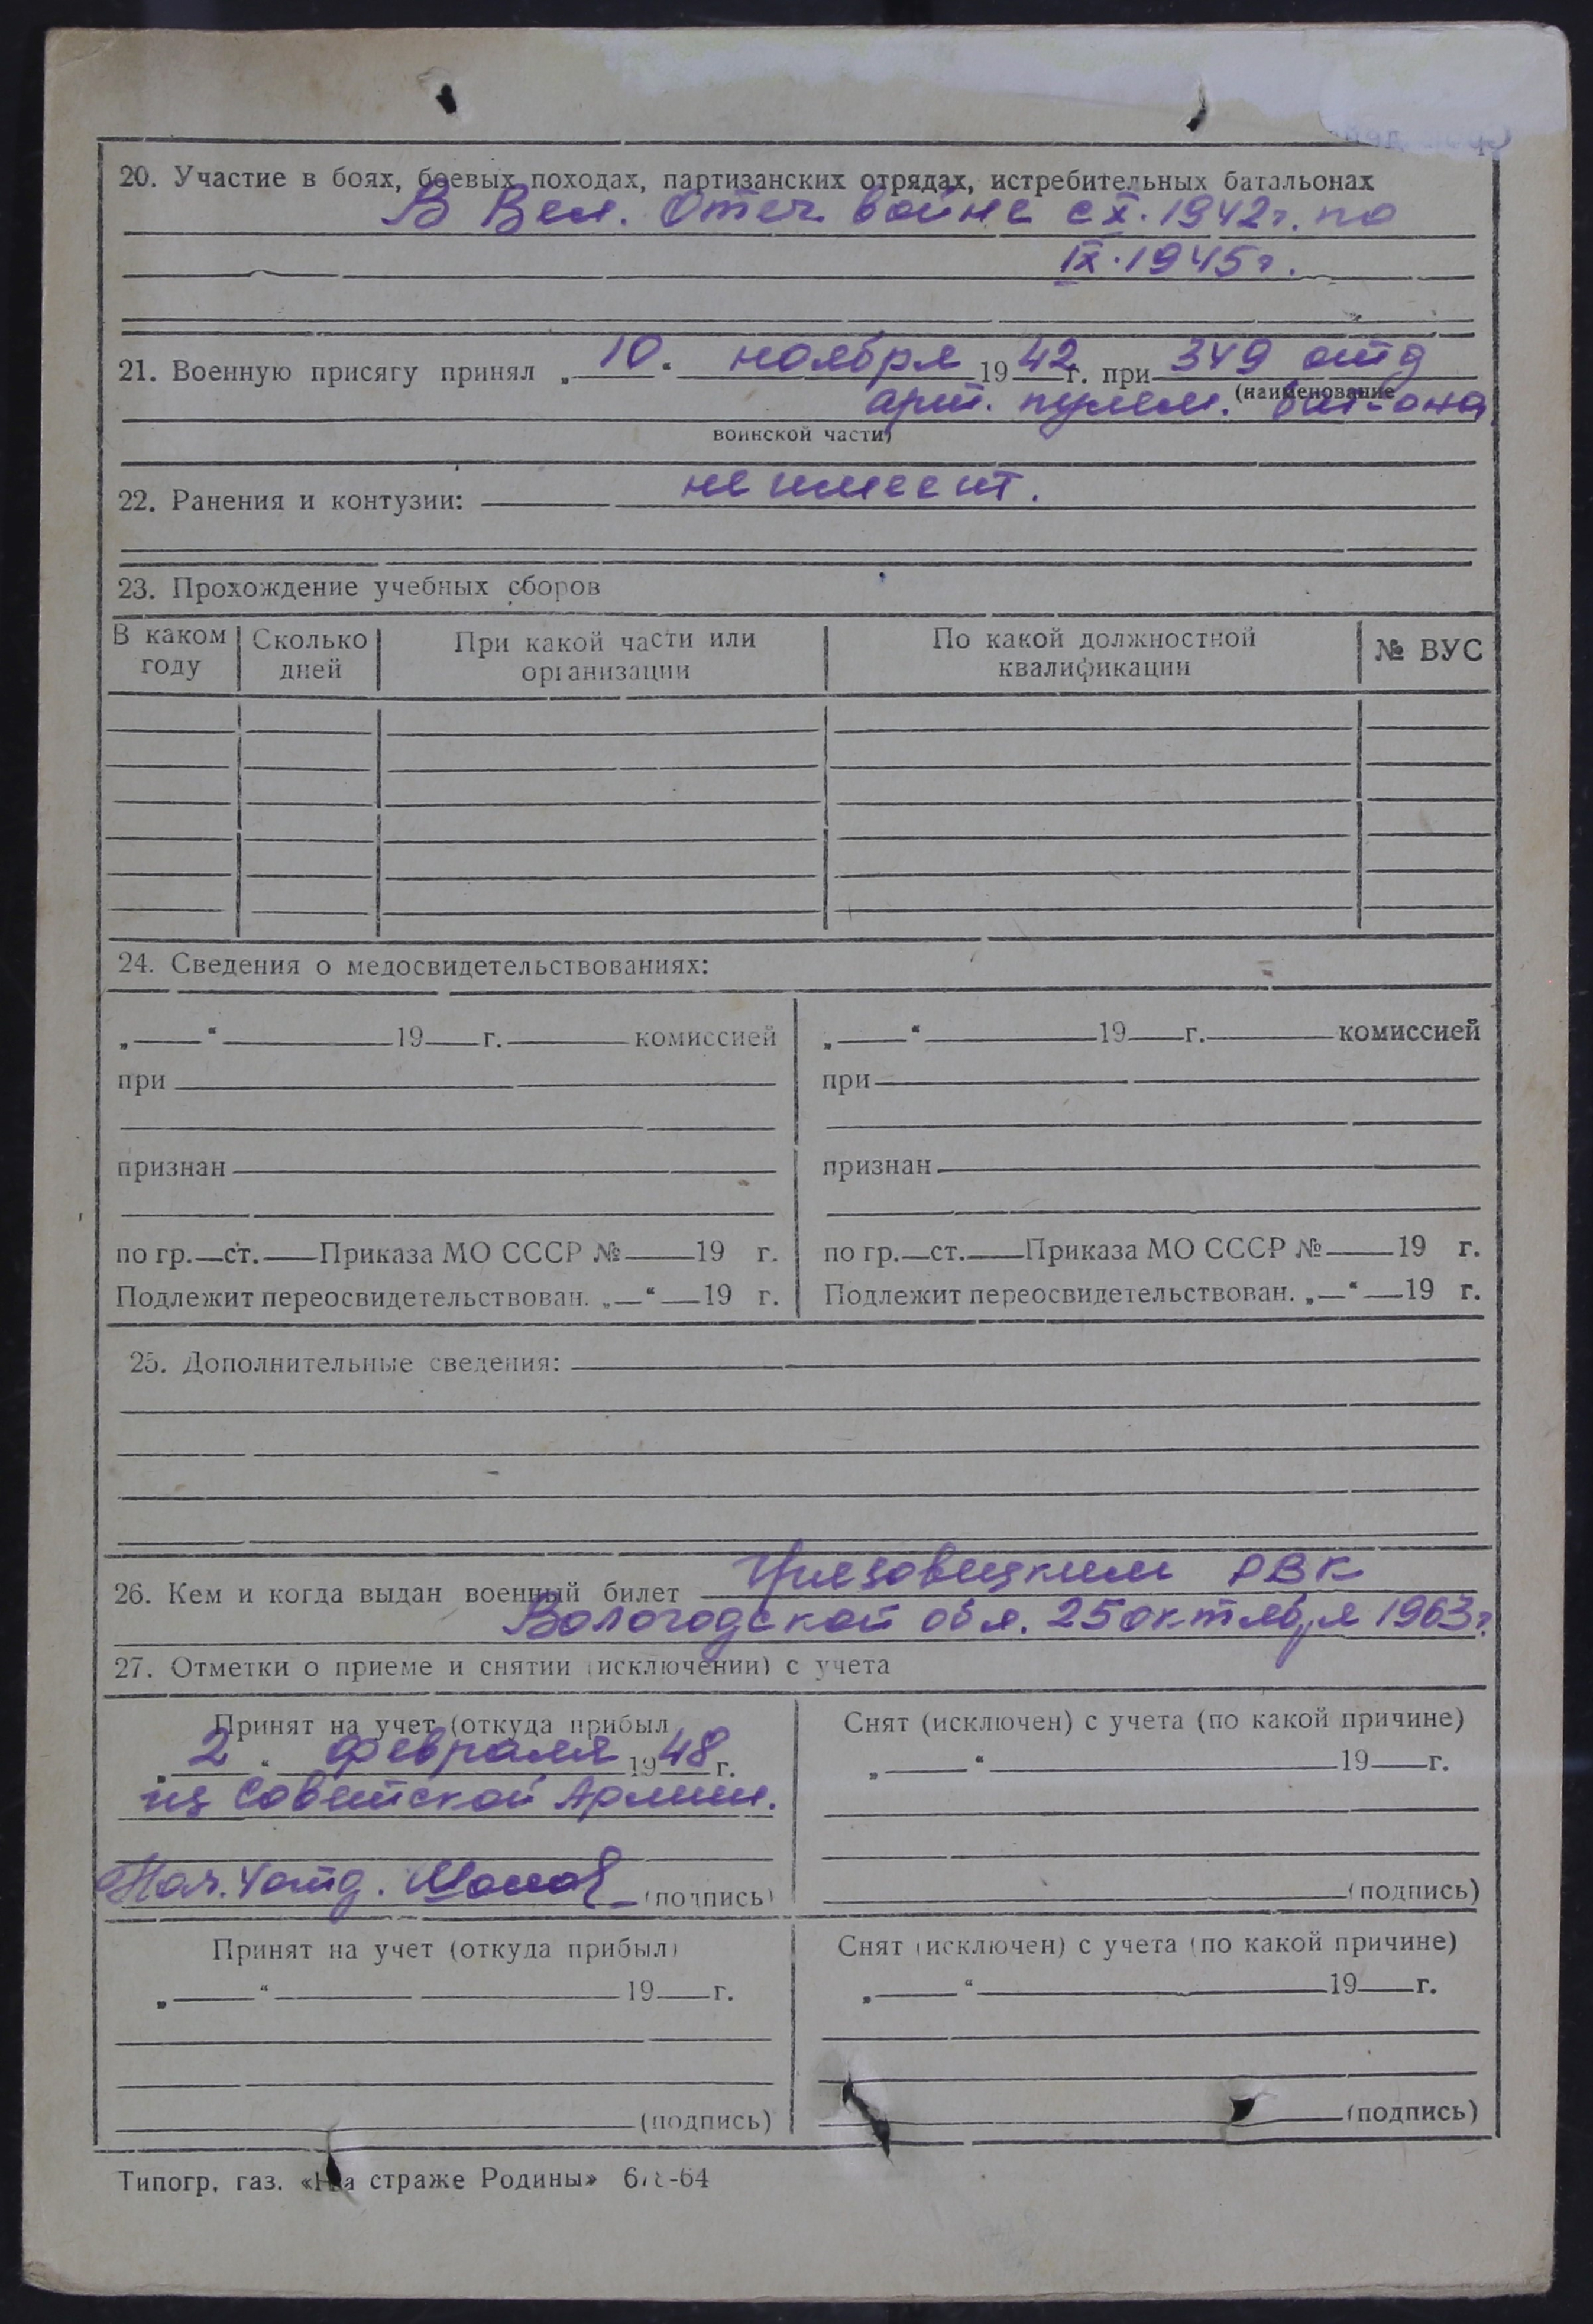 20. Участие в боях, боевых походах, партизанских отрядах, истребительных батальонах
В Вел. Отеч войне с X. 1942 г. по
IX. 1945 г.
21. Военную присягу принял „10“ ноября 1942 г. при 349 отд
(наименование
арт. пулем. бат-она
воинской части)
22. Ранения и контузии: не имеет.
23. Прохождение учебных сборов
В каком году | Сколько дней | При какой части или организации | По какой должностной квалификации | № ВУС
24. Сведения о медосвидетельствованиях:
„ “ 19 г. комиссией
при
признан
по гр. ст. Приказа МО СССР № 19 г.
Подлежит переосвидетельствован. „ “ 19 г.
„ “ 19 г. комиссией
при
признан
по гр. ст. Приказа МО СССР № 19 г.
Подлежит переосвидетельствован. „ “ 19 г.
25. Дополнительные сведения:
26. Кем и когда выдан военный билет Грязовецким РВК
Вологодской обл. 25 октября 1963 г.
27. Отметки о приеме и снятии (исключении) с учета
Принят на учет (откуда прибыл
„2“ февраля 1948 г.
из Советской Армии.
Нач. 4 отд. (подпись)
Снят (исключен) с учета (по какой причине)
„ “ 19 г.
(подпись)
Принят на учет (откуда прибыл)
„ “ 19 г.
(подпись)
Снят (исключен) с учета (по какой причине)
„ “ 19 г.
(подпись)
Типогр. газ. «На страже Родины»